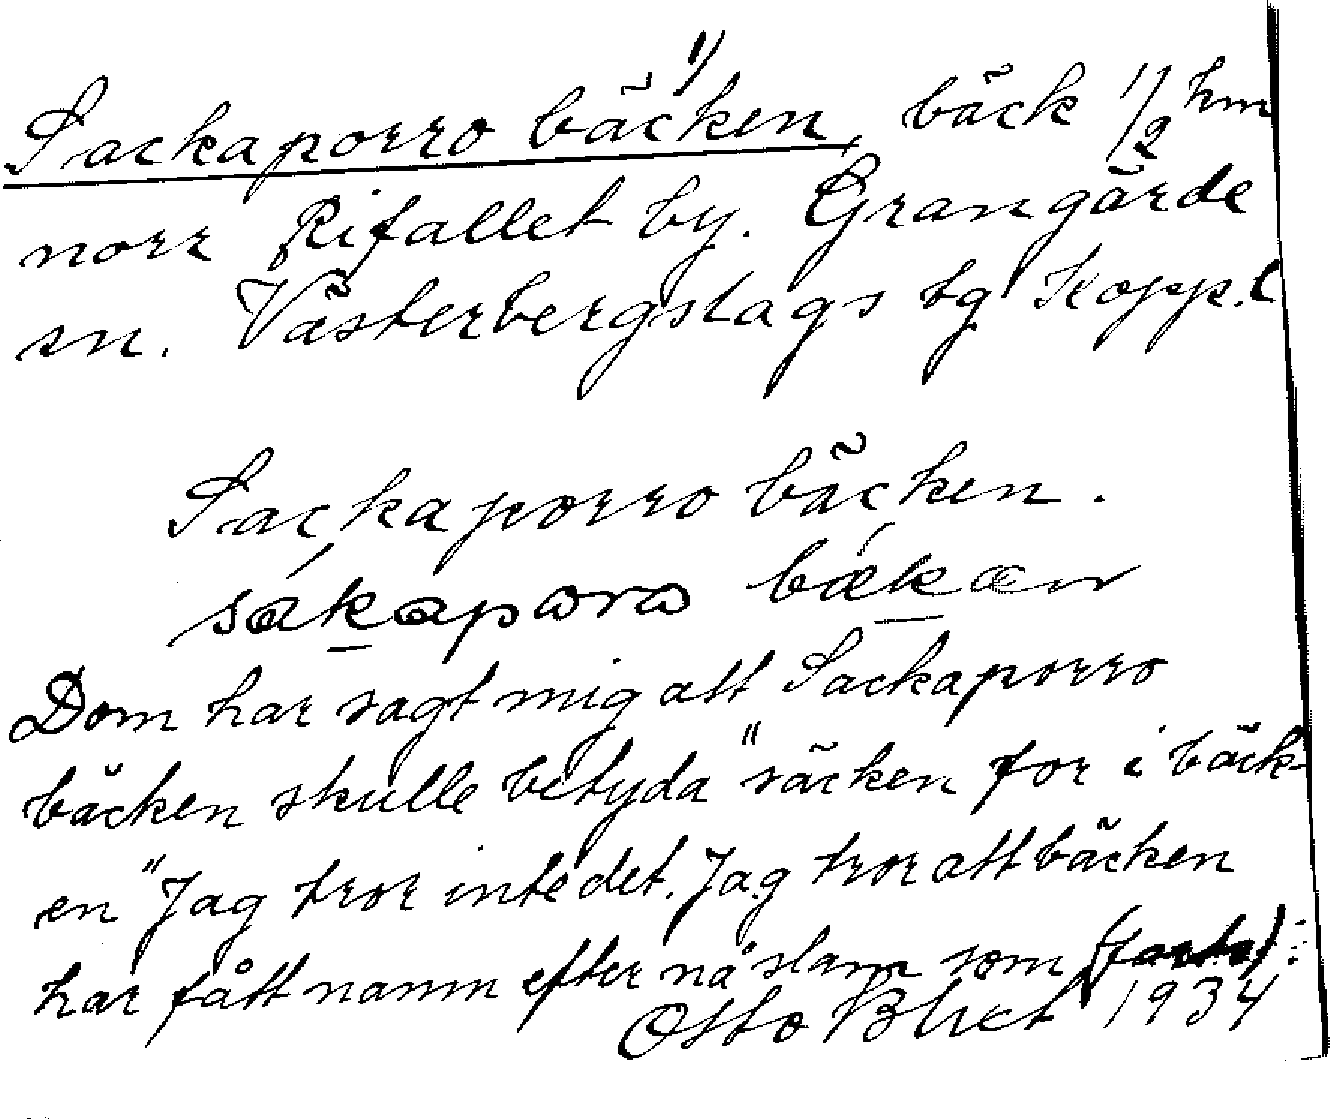 1)
Sackaporro bäcken, bäck 1/2 km
norr Rifallet by. Grangärde
sn. Västerbergslags tg Kopp.l
Sackaporro bäcken.
sákaporo bǽkæn
Dom har sagt mig att Sackaporro
bäcken skulle betyda "säcken for i bäck-
en" Jag tror inte det. Jag tror att bäcken
har fått namn efter nå slam som (forts):
Otto Blixt 1934